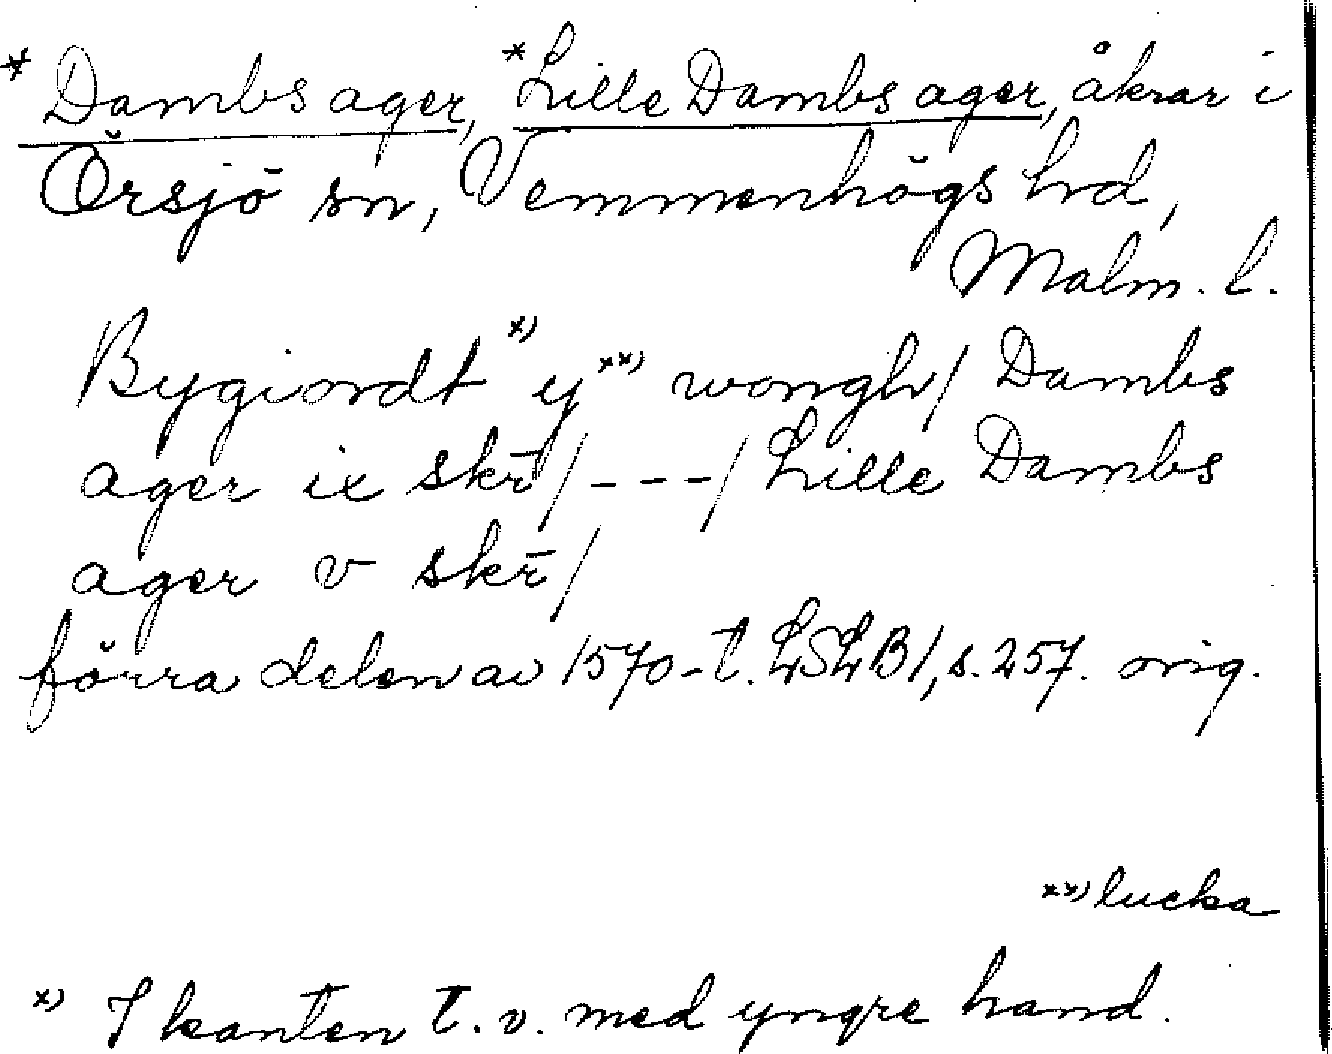 * Dambs ager, *Lille Dambs ager, åkrar i
Örsjö sn, Vemmenhögs hd,
Malm. l.
Bygiordt x) y xx) wongh/ Dambs
ager ix skr̄/---/ Lille Dambs
ager v skr̄/
förra delen av 1570-t. LSLB1, s. 257. orig.
xx) lucka
x) I kanten t. v. med yngre hand.